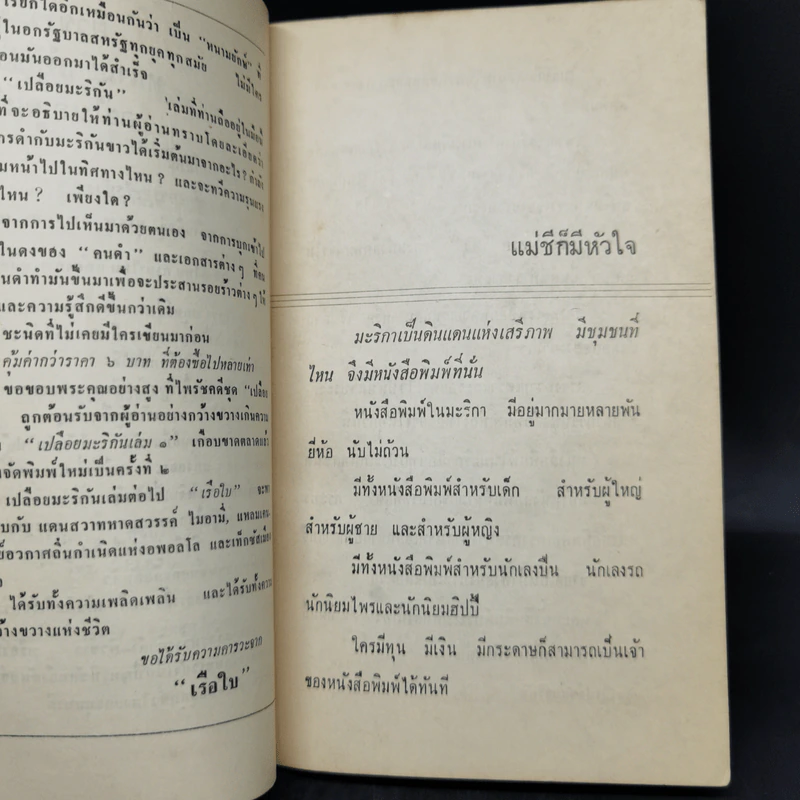 เรียกได้อีกเหมือนกันว่า เป็น “หนามยักษ์” ที่
ในอกรัฐบาลสหรัฐทุกยุคทุกสมัย ไม่มีใคร
อนมันออกมาได้สำเร็จ
“เปลือยมะริกัน” เล่มที่ท่านถืออยู่ในมือนี้
ที่จะอธิบายให้ท่านผู้อ่านทราบโดยละเอียดว่า
กรดำกับมะริกันขาวได้เริ่มต้นมาจากอะไร?
มหน้าไปในทิศทางไหน? และจะทวีความรุนแรง
ไหน? เพียงใด?
จากการไปเห็นมาด้วยตนเอง จากการบุกเข้าไป
ในดงของ “คนดำ” และเอกสารต่างๆ ที่คน
นดำทำมันขึ้นมาเพื่อจะประสานรอยร้าวต่างๆ ให้
และความรู้สึกดีขึ้นกว่าเดิม
ชะนิดที่ไม่เคยมีใครเขียนมาก่อน
คุ้มค่ากว่าราคา ๖ บาท ที่ต้องซื้อไปหลายเท่า
ขอขอบพระคุณอย่างสูง ที่ไพรัชคดีชุด “เปลือย
ถูกต้อนรับจากผู้อ่านอย่างกว้างขวางเกินความ
“เปลือยมะริกันเล่ม ๑” เกือบขาดตลาดแล้ว
จัดพิมพ์ใหม่เป็นครั้งที่ ๒
เปลือยมะริกันเล่มต่อไป “เรือใบ” จะพา
บกับ แดนสวาทหาดสวรรค์ ไมอามี่, แหลมเคน
ย์อวกาศถิ่นกำเนิดแห่งอพอลโล และเท็กซัสเมือง
อ
ได้รับทั้งความเพลิดเพลิน และได้รับทั้งความ
ว้างขวางแห่งชีวิต
ขอได้รับความคารวะจาก
“เรือใบ”
แม่ชีก็มีหัวใจ
มะริกาเป็นดินแดนแห่งเสรีภาพ มีชุมชนที่
ไหน จึงมีหนังสือพิมพ์ที่นั่น
หนังสือพิมพ์ในมะริกา มีอยู่มากมายหลายพัน
ยี่ห้อ นับไม่ถ้วน
มีทั้งหนังสือพิมพ์สำหรับเด็ก สำหรับผู้ใหญ่
สำหรับผู้ชาย และสำหรับผู้หญิง
มีทั้งหนังสือพิมพ์สำหรับนักเลงปืน นักเลงรถ
นักนิยมไพรและนักนิยมฮิปปี้
ใครมีทุน มีเงิน มีกระดาษก็สามารถเป็นเจ้า
ของหนังสือพิมพ์ได้ทันที